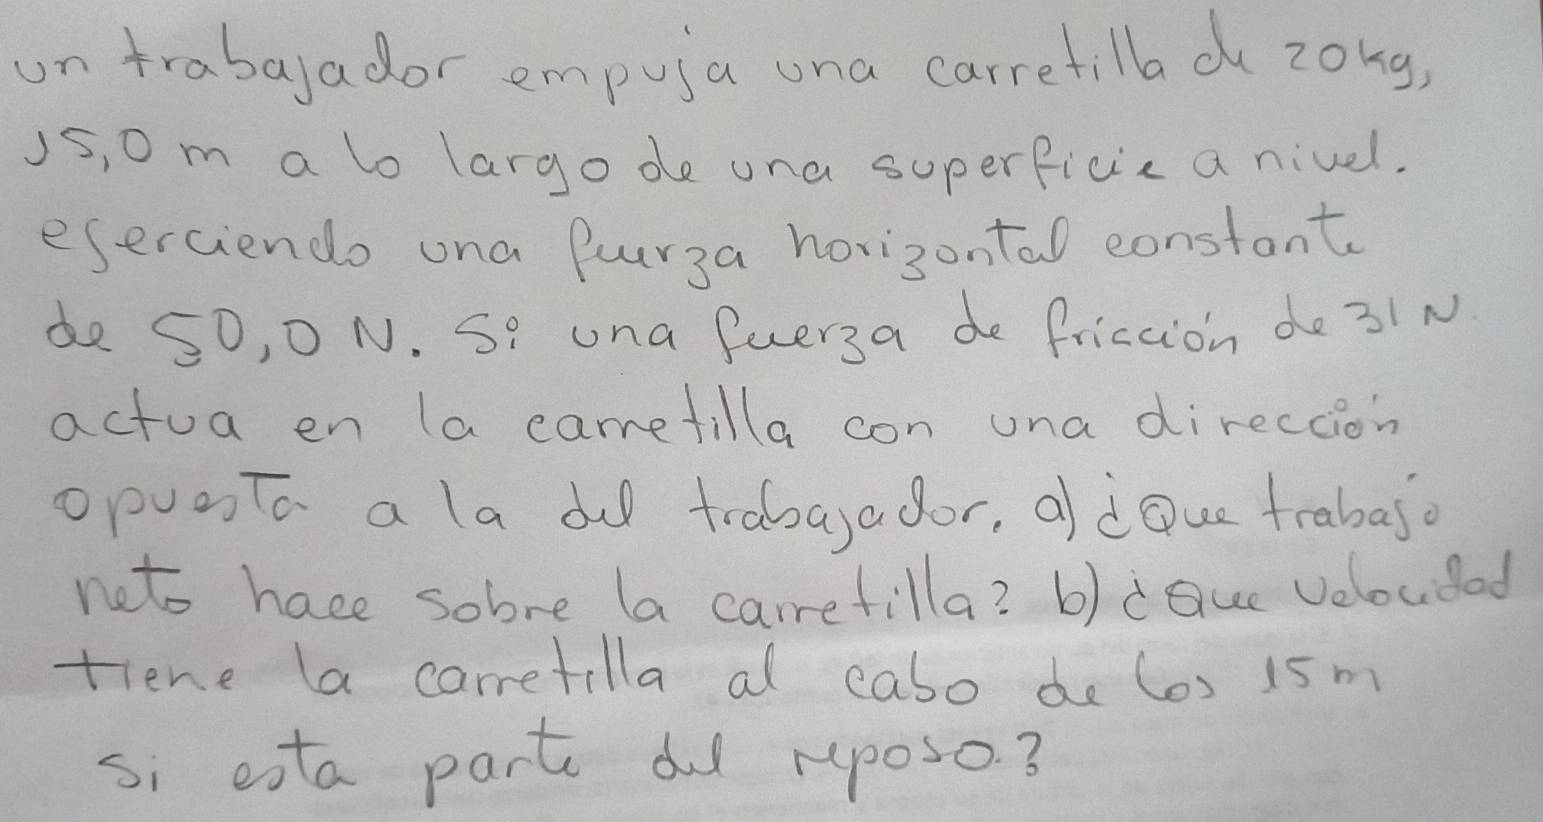 un trabajador empuja una carretilla de 20kg,
15,0 m a lo largo de una superficie a nivel.
eserciendo una fuerza horizontal constante
de 50,0 N. Si una fuerza de fricción de 31 N.
actua en la carretilla con una dirección
opuesta a la del trabajador. a) ¿Que trabajo
neto hace sobre la carretilla? b) ¿Que velocidad
tiene la carretilla al cabo de los 15 m
si esta parte del reposo.?